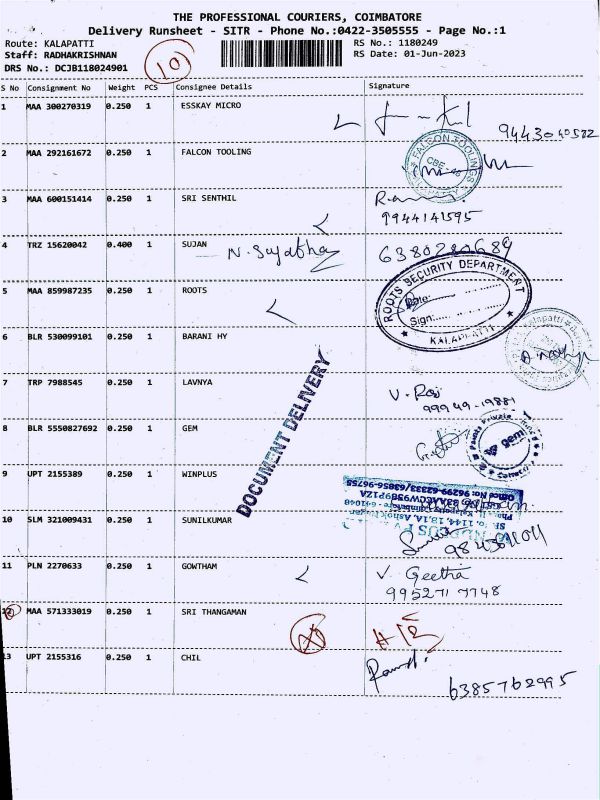 THE PROFESSIONAL COURIERS, COIMBATORE
Delivery Runsheet - SITR - Phone No.:0422-3505555 - Page No.:1
Route: KALAPATTI
RS No.: 1180249
Staff: RADHAKRISHNAN
RS Date: 01-Jun-2023
DRS No.: DCJB118024901
10
S No Consignment No Weight PCS Consignee Details Signature
1 MAA 300270319 0.250 1 ESSKAY MICRO
9443040582
2 MAA 292161672 0.250 1 FALCON TOOLING
FALCON TOOLINGS
CBE
3 MAA 600151414 0.250 1 SRI SENTHIL
9944141595
4 TRZ 15620042 0.400 1 SUJAN N. Sujatha 6380280689
5 MAA 859987235 0.250 1 ROOTS
ROOTS SECURITY DEPARTMENT
Date:
Sign:
KALAPPATTI
6 BLR 530099101 0.250 1 BARANI HY
7 TRP 7988545 0.250 1 LAVNYA
V. Raj
99949-19881
DOCUMENT DELIVERY
8 BLR 5550827692 0.250 1 GEM
gem
9 UPT 2155389 0.250 1 WINPLUS
Office No: 96299-62333/63856-96758
10 SLM 321009431 0.250 1 SUNILKUMAR
11 PLN 2270633 0.250 1 GOWTHAM
V. Geetha
9952717748
12 MAA 571333019 0.250 1 SRI THANGAMAN
13 UPT 2155316 0.250 1 CHIL
6385762995